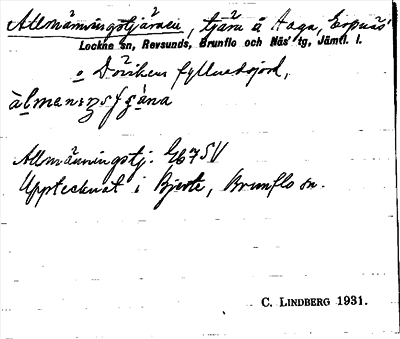 Allmänningstjärnen, tjärn å Haga, Espnäs
Lockne sn, Revsunds, Brunflo och Näs' tg, Jämtl. l.
o Dövikens fyllnadsjord,
Allmänningstj. 467 SV
Upptecknat i Bjerte, Brunflo sn.
C. LINDBERG 1931.